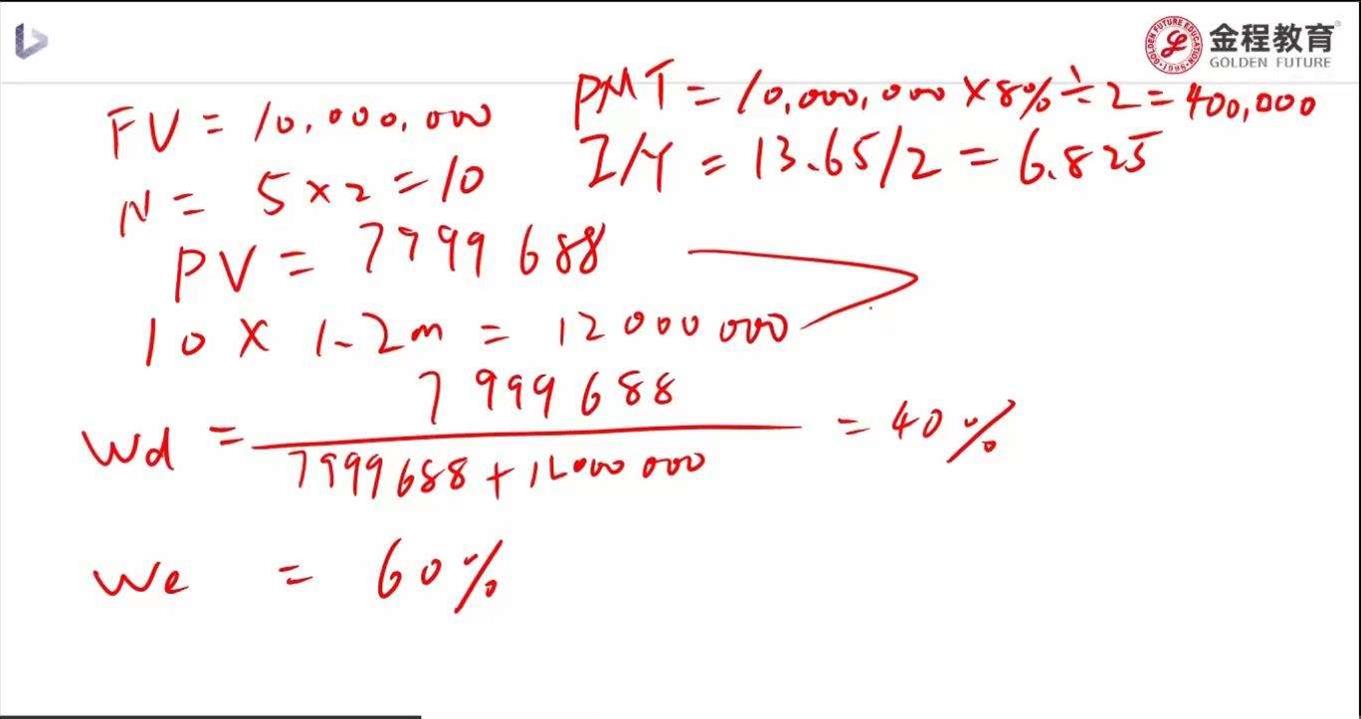 金程教育
GOLDEN FUTURE
GOLDEN FUTURE EDUCATION
1998
FV = 10,000,000
PMT = 10,000,000 × 8% ÷ 2 = 400,000
N = 5 × 2 = 10
I/Y = 13.65/2 = 6.825
PV = 7999688
10 × 1.2m = 12000000
Wd = 7999688 / 7999688 + 12000000 = 40%
We = 60%